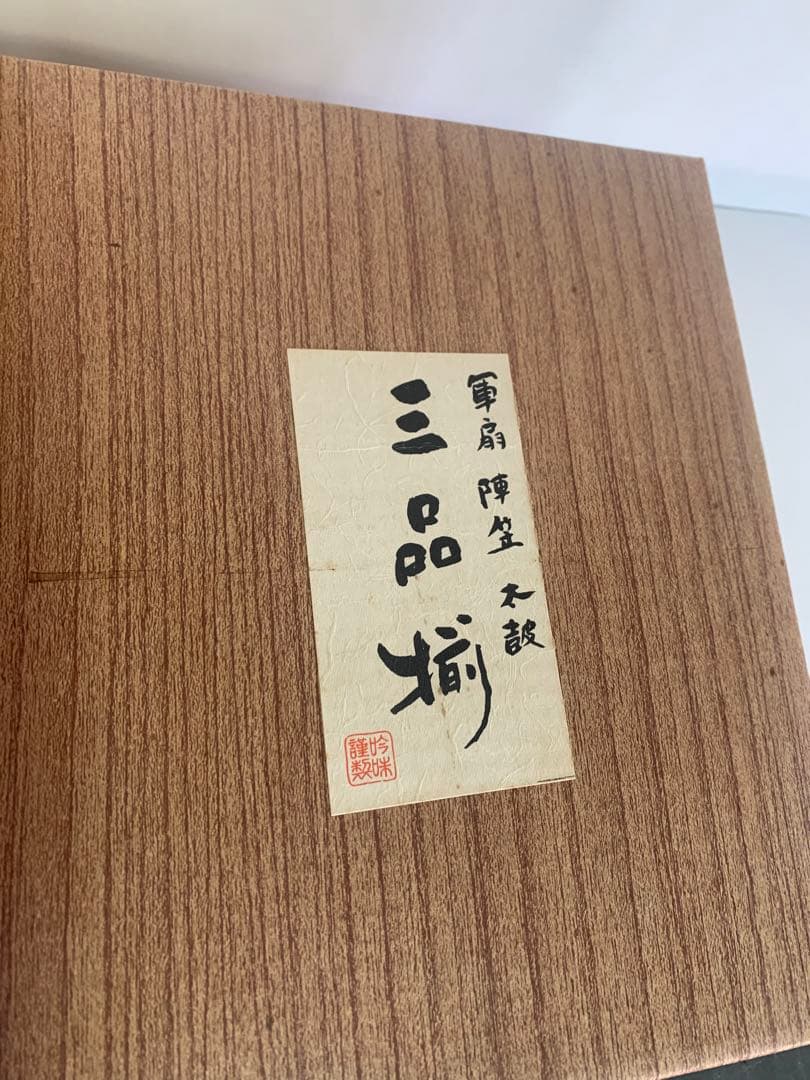 軍扇 陣笠 太鼓
三品揃
吟味
謹製